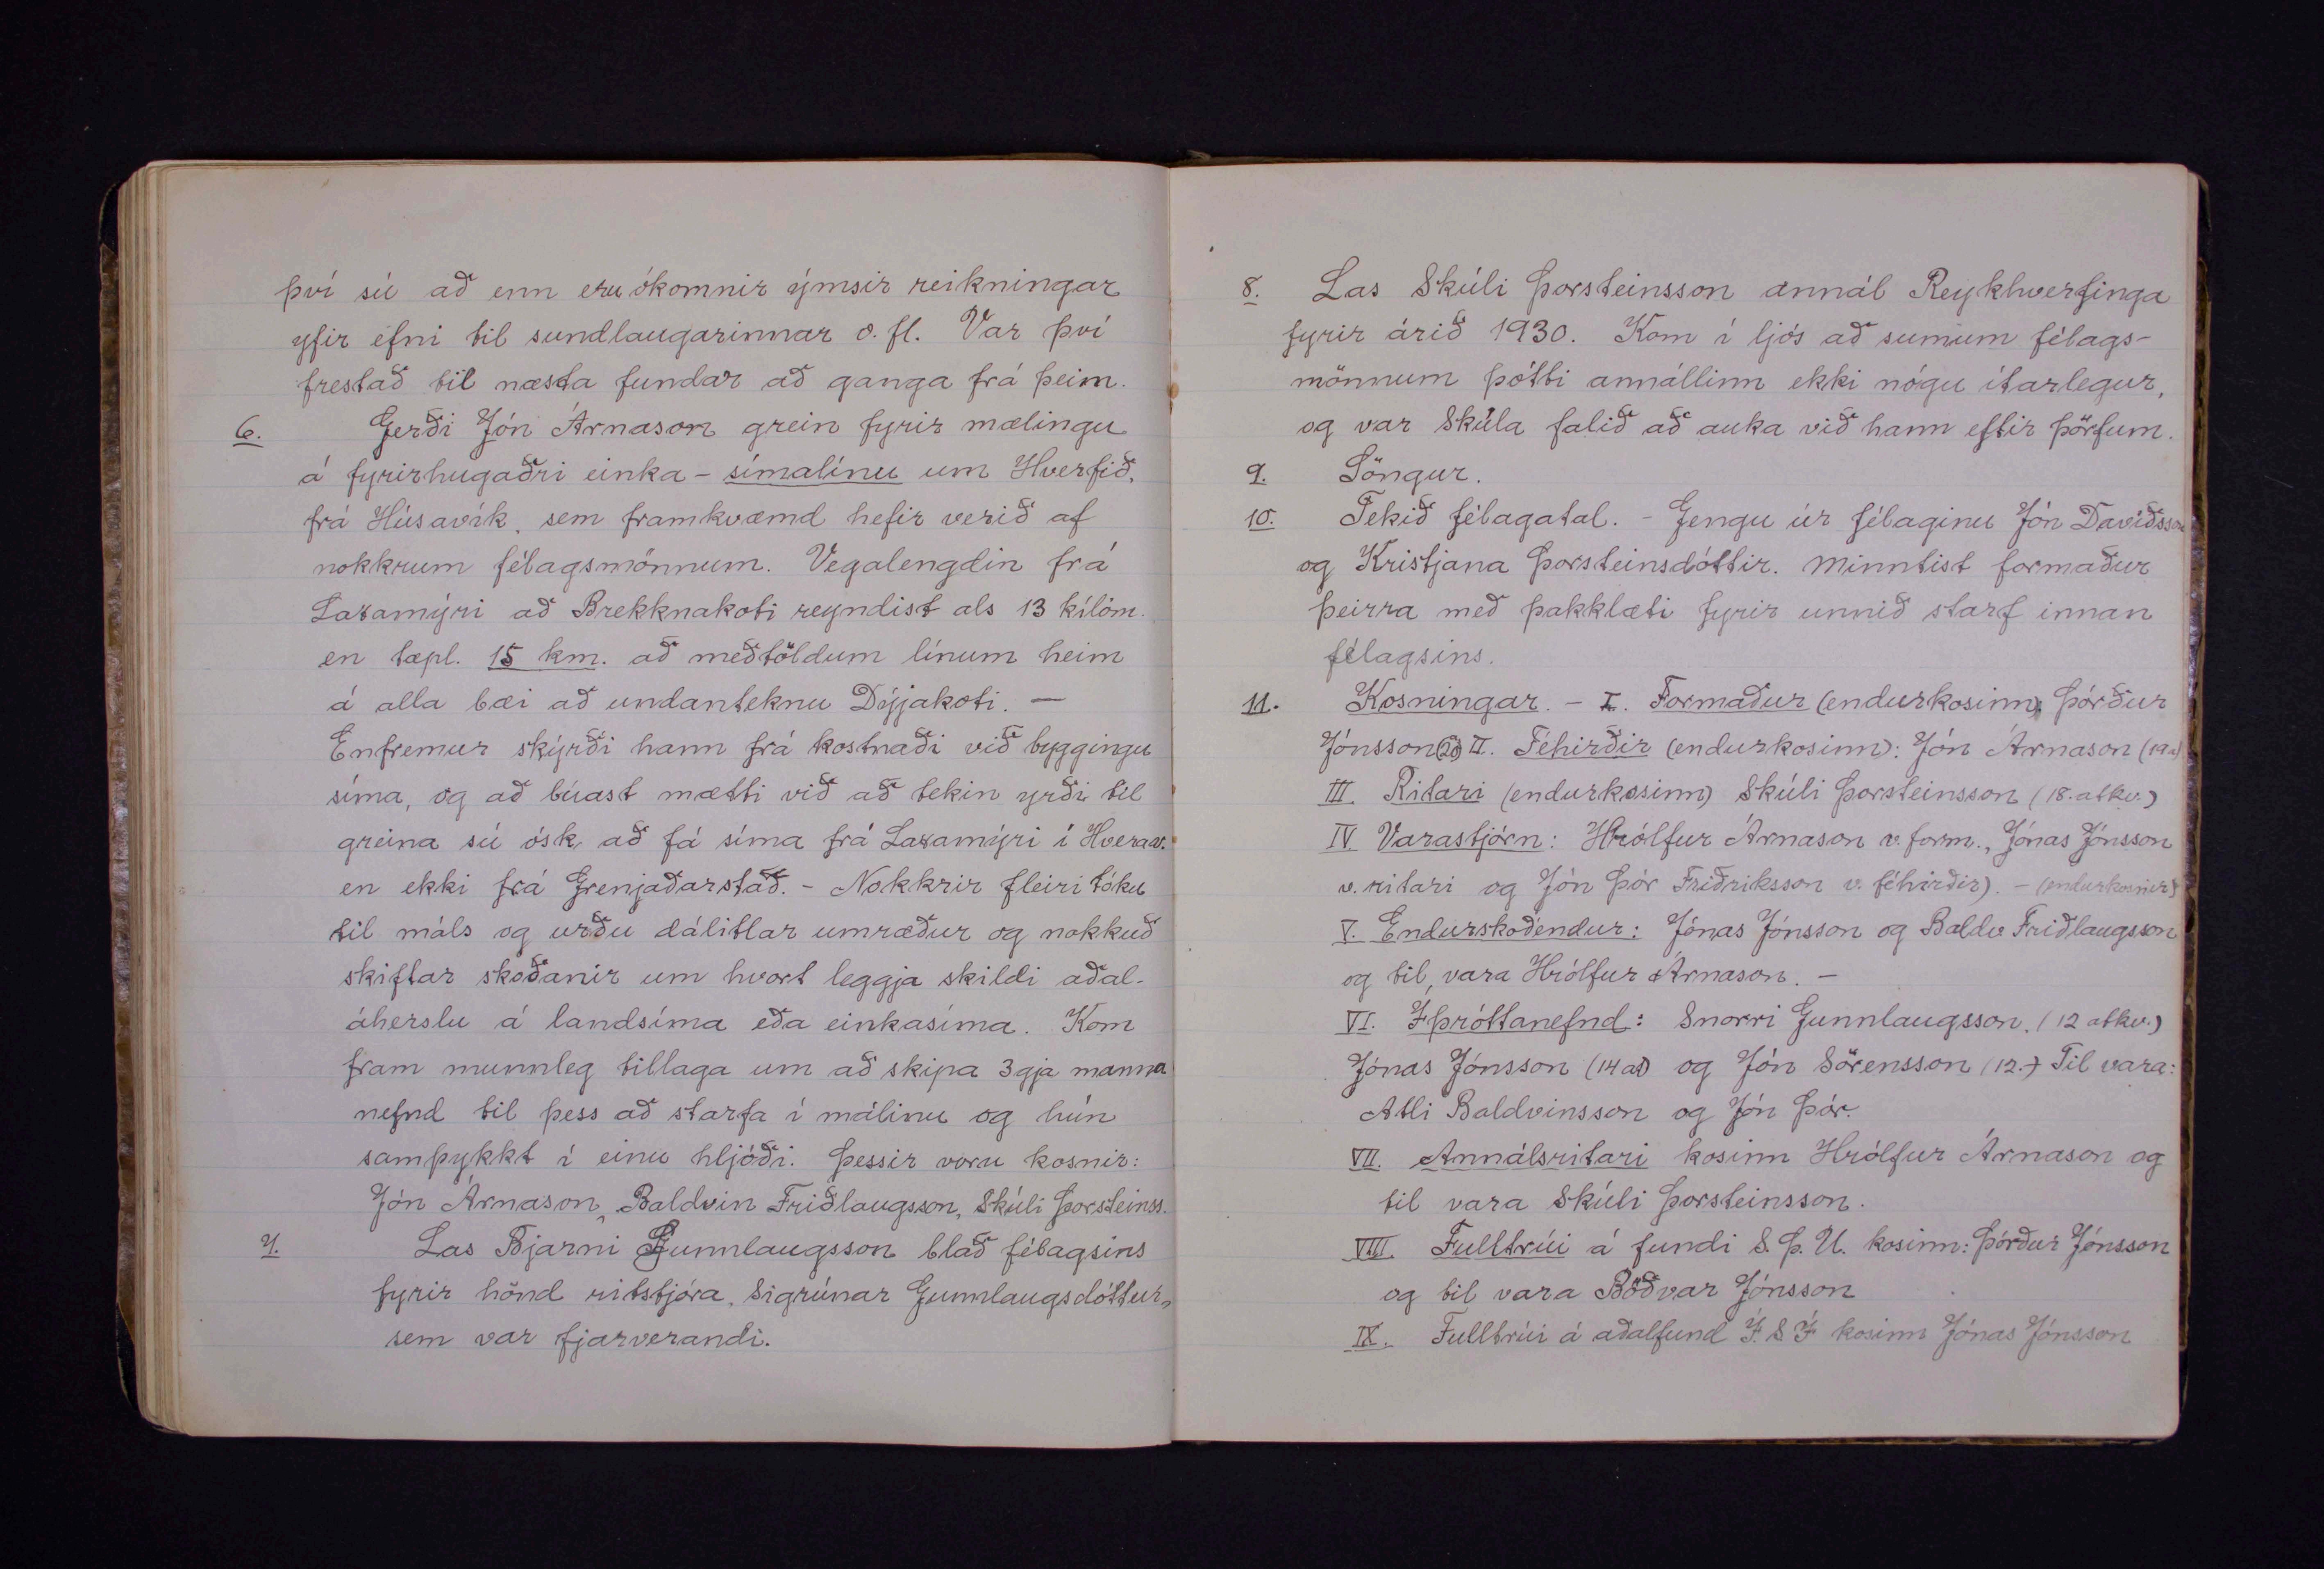 því sú að enn eru ókomnir ýmsir reikningar
yfir efni til sundlaugarinnar o. fl. Var því
frestað til næsta fundar að ganga frá þeim.
6. Gerði Jón Árnason grein fyrir mælingu
á fyrirhugaðri einka-símalínu um Hverfið,
frá Húsavík, sem framkvæmd hefir verið af
nokkrum félagsmönnum. Vegalengdin frá
Laxamýri að Brekknakoti reyndist als 13 kílóm.
en tæpl. 15 km. að meðtöldum línum heim
á alla bæi að undanteknu Dýjakoti. —
Enfremur skýrði hann frá kostnaði við byggingu
síma, og að búast mætti við að tekin yrði til
greina sú ósk að fá síma frá Laxamýri í Hverav.
en ekki frá Grenjaðarstað. - Nokkrir fleiri tóku
til máls og urðu dálitlar umræður og nokkuð
skiftar skoðanir um hvort leggja skildi aðal-
áherslu á landsíma eða einkasíma. Kom
fram munnleg tillaga um að skipa 3gja manna
nefnd til þess að starfa í málinu og hún
samþykkt í einu hljóði. Þessir voru kosnir:
Jón Árnason, Baldvin Friðlaugsson, Skúli Þorsteinss.
7. Las Bjarni Gunnlaugsson blað félagsins
fyrir hönd ritstjóra, Sigrúnar Gunnlaugsdóttur,
sem var fjarverandi.
8. Las Skúli Þorsteinsson annál Reykhverfinga
fyrir árið 1930. Kom í ljós að sumum félags-
mönnum þótti annállinn ekki nógu ítarlegur,
og var Skúla falið að auka við hann eftir þörfum.
9. Söngur.
10. Tekið félagatal. - Gengu úr félaginu Jón Davíðsson
og Kristjana Þorsteinsdóttir. Minntist formaður
þeirra með þakklæti fyrir unnið starf innan
félagsins.
11. Kosningar. - I. Formaður (endurkosinn) Þórður
Jónsson II. Féhirðir (endurkosinn): Jón Árnason (19 a)
III. Ritari (endurkosinn) Skúli Þorsteinsson (18. atkv.)
IV. Varastjórn: Hrólfur Árnason v. form., Jónas Jónsson
v. ritari og Jón Þór Friðriksson v. féhirðir). - (endurkosnir)
V. Endurskoðendur: Jónas Jónsson og Baldv Friðlaugsson
og til vara Hrólfur Árnason. -
VI. Íþróttanefnd: Snorri Gunnlaugsson. (12 atkv.)
Jónas Jónsson (14 at) og Jón Sörensson (12.-) Til vara:
Atli Baldvinsson og Jón Þór.
VII. Annálsritari kosinn Hrólfur Árnason og
til vara Skúli Þorsteinsson.
VIII. Fulltrúi á fundi S. Þ. U. kosinn: Þórður Jónsson
og til vara Böðvar Jónsson
IX. Fulltrúi á aðalfund Í. S Í kosinn Jónas Jónsson